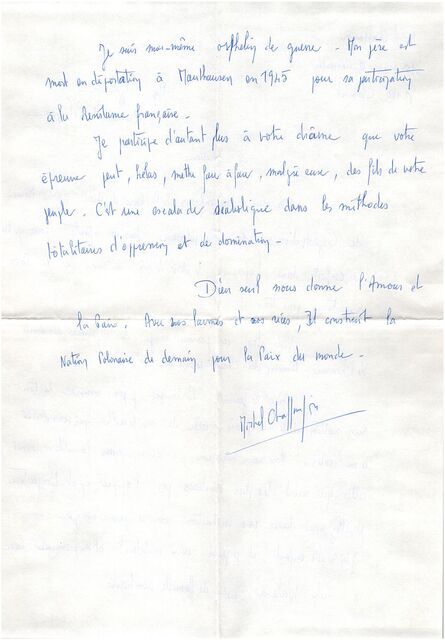 Je suis moi-même orphelin de guerre - Mon père est
mort en déportation à Mauthausen en 1945 pour sa participation
à la Résistance française.
Je participe d'autant plus à votre drame que votre
épreuve peut, hélas, mettre face à face, malgré eux, des fils de votre
peuple. C'est une escalade diabolique dans les méthodes
totalitaires d'oppression et de domination -
Dieu seul nous donne l'Amour et
la Paix. Avec vos larmes et vos , Il construit la
Nation Polonaise de demain pour la Paix du monde -
Michel